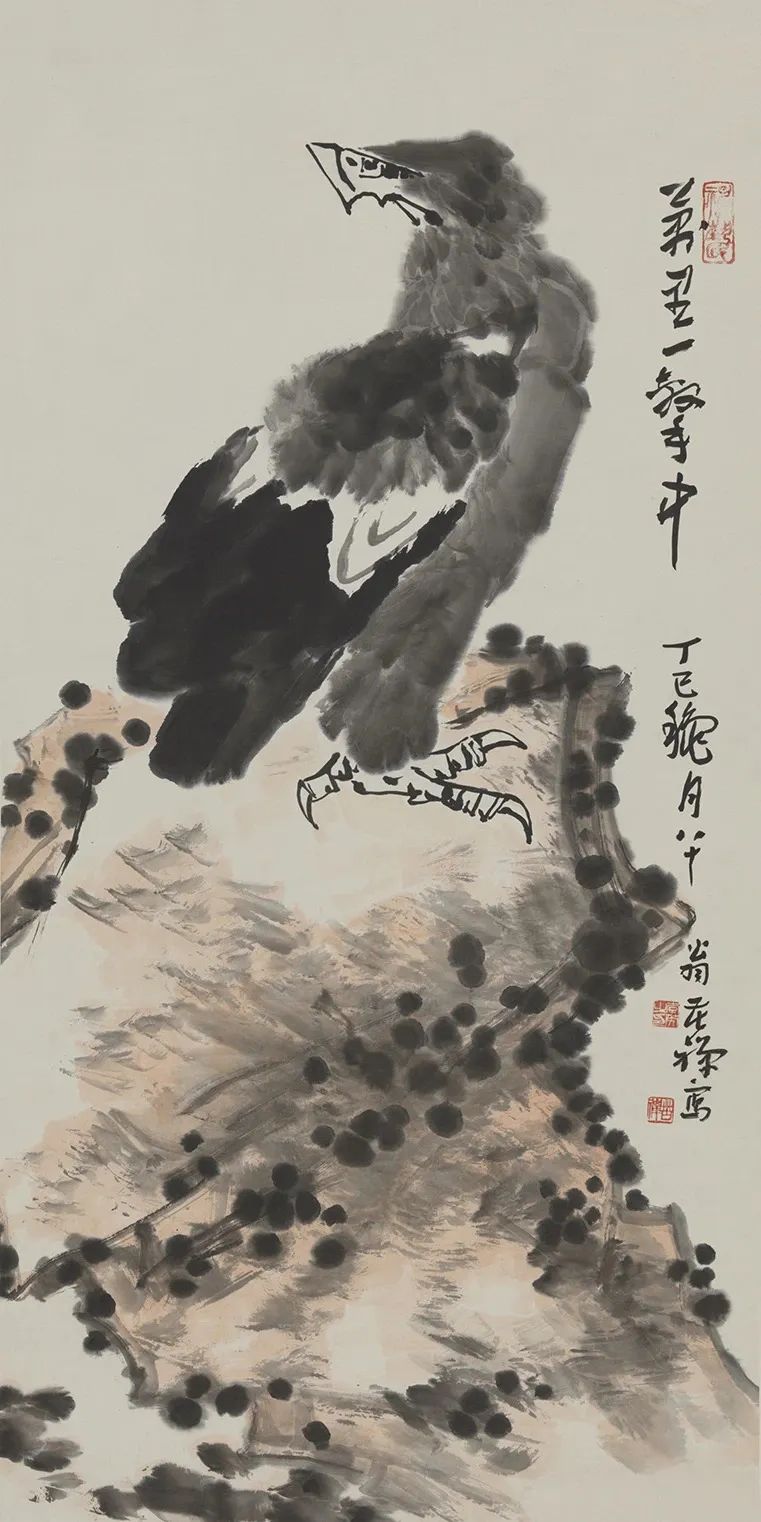 萬里一擊中　丁巳龝月八十翁苦禪寫